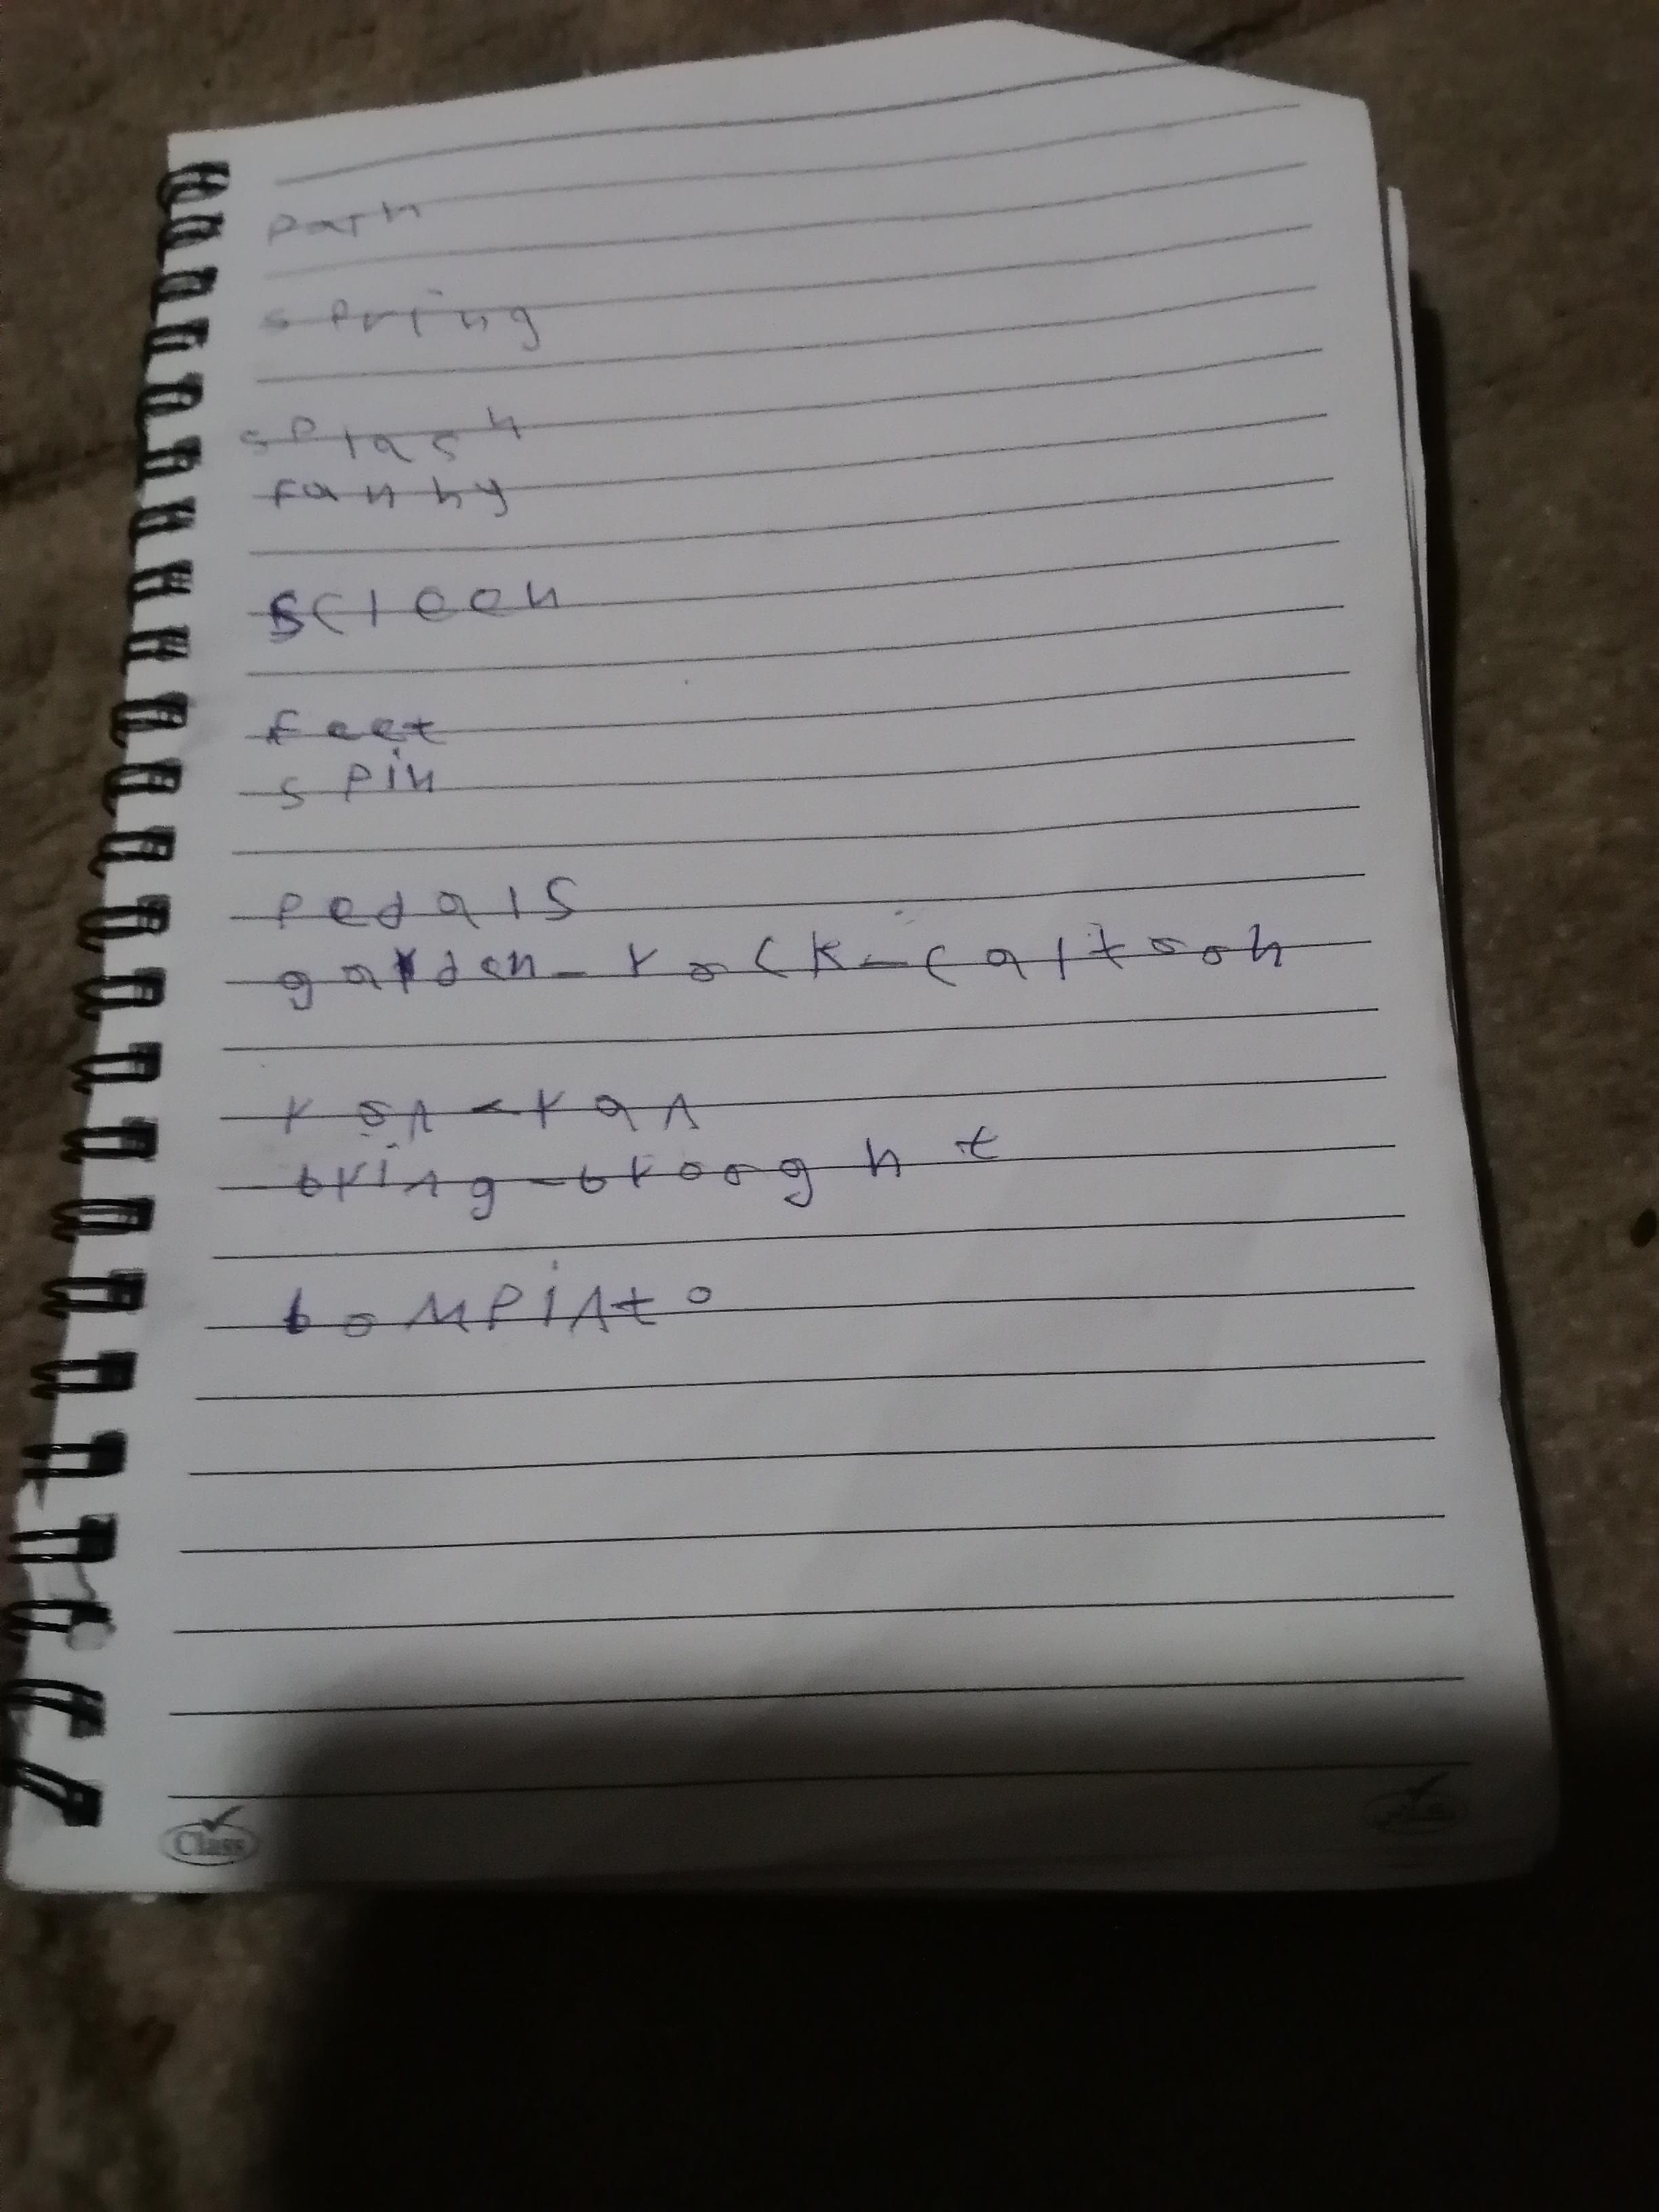 path
spring
splash
fanny
scleen
feet
spin
pedals
garden - rock - caltoon
ron - ran
bring - brooght
bompinto
Class
كلاس